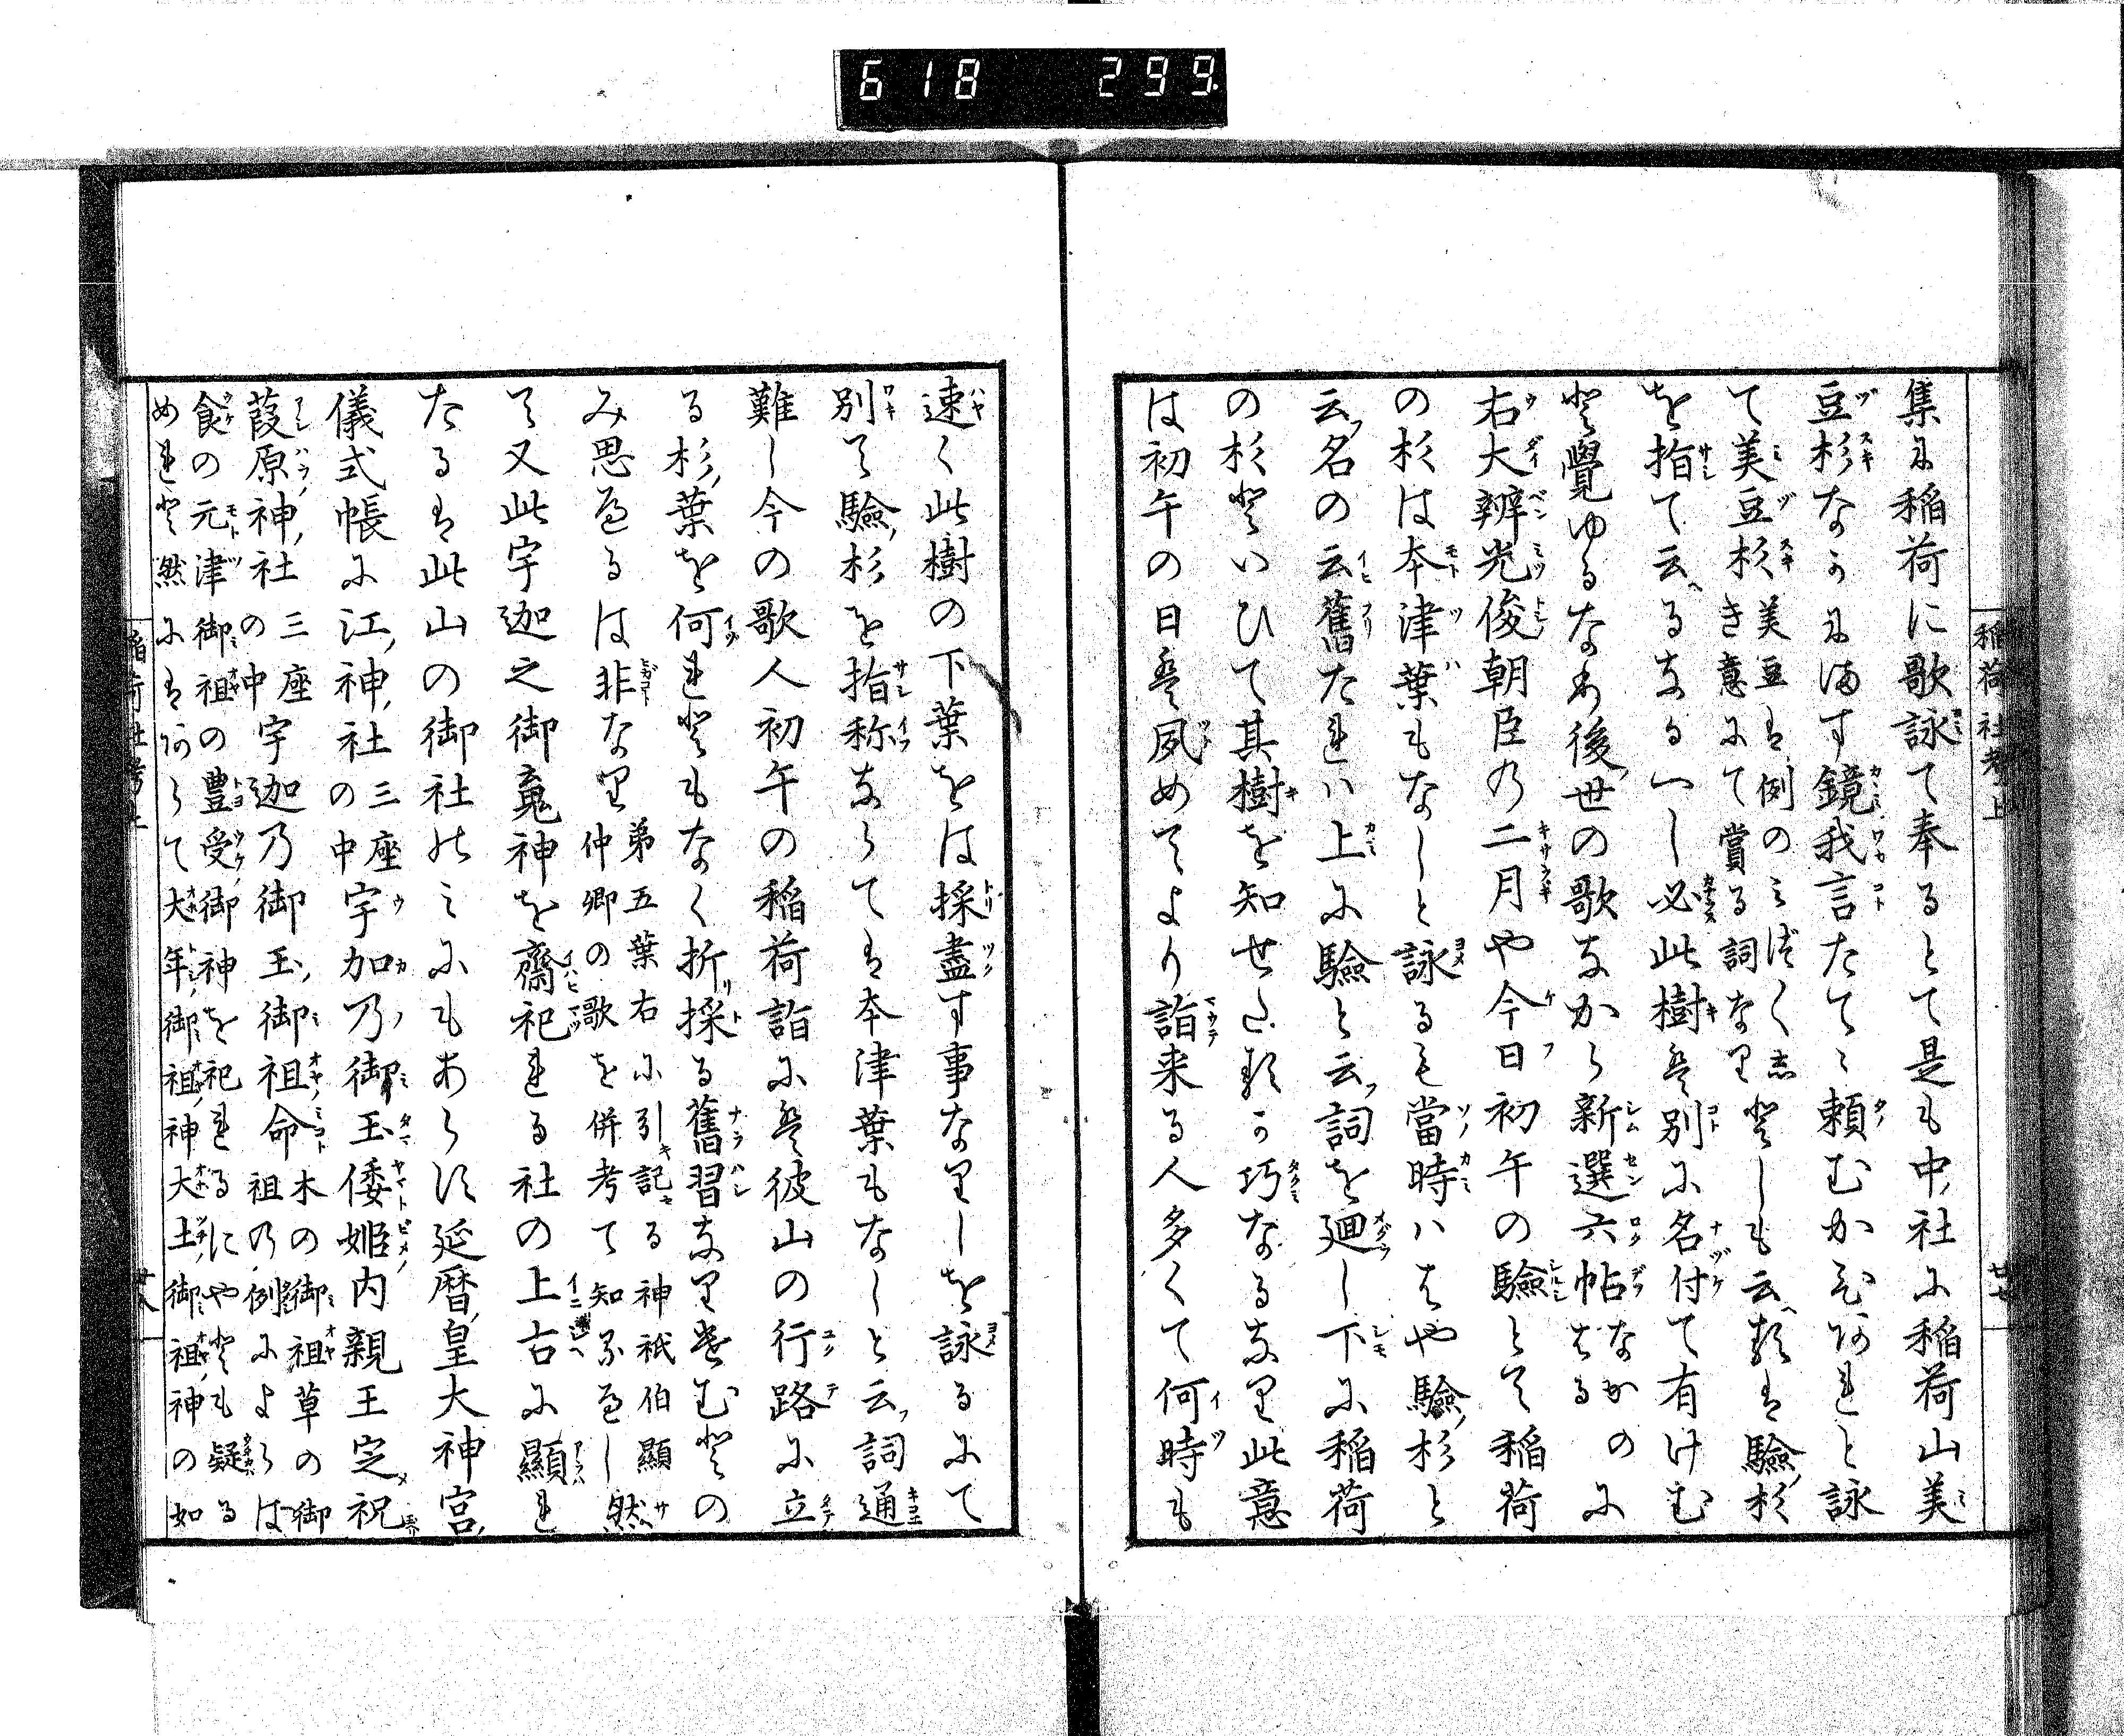 618 299
稲荷社考上
廿七
集に稲荷に歌詠て奉るとて是も中社に稲荷山美
豆杉なかにます鏡我言たてゝ頼むかひあれと詠
て美豆杉美豆は例のみづ〳〵志き意にて賞る詞なりとしも云へるは験杉
を指て云へるなるべし必此樹は別に名付て有けむ
と覚ゆるなり後世の歌なから新選六帖なかのにはる
右大辨光俊朝臣の二月や今日初午の験とて稲荷
の杉は本津葉もなしと詠るも當時ハはや験杉と
云名の云舊たれハ上に験と云詞を廻し下に稲荷
の杉といひて其樹を知せたるか巧なるなり此意
は初午の日は夙めてより詣来る人多くて何時も
速く此樹の下葉をは採盡す事なりしを詠るにて
別て験杉を指称ならては本津葉もなしと云詞通
難し今の歌人初午の稲荷詣には彼山の行路に立
る杉葉を何れともなく折採る舊習なりけむとの
み思へるは非なり弟五葉右に引記る神祇伯顯仲卿の歌を併考て知るへし然
て又此宇迦之御魂神を齋祀れる社の上古に顯れ
たるは此山の御社のみにもあらす延暦皇大神宮
儀式帳に江神社三座の中宇加乃御玉倭姫内親王定祝
葭原神社三座の中宇迦乃御玉御祖命木の御祖草の御祖の例によらは御
食の元津御祖の豊受御神を祀れるにやとも疑る
めれと然にはあらて大年御祖神大土御祖神の如
稲荷社考上
廿八